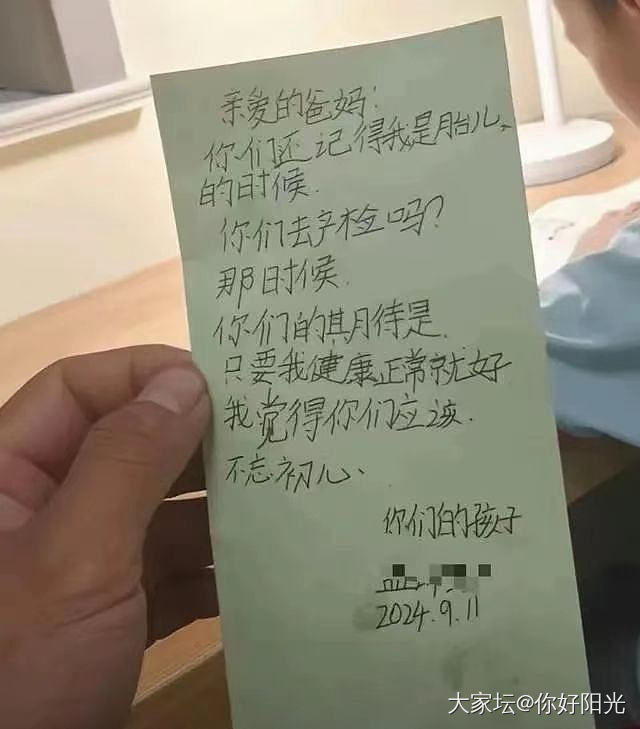 亲爱的爸妈：
你们还记得我是胎儿、
的时候.
你们去产检吗？
那时候.
你们的期待是.
只要我健康正常就好
我觉得你们应该.
不忘初心、
你们的孩子
2024.9.11
大家坛@你好阳光